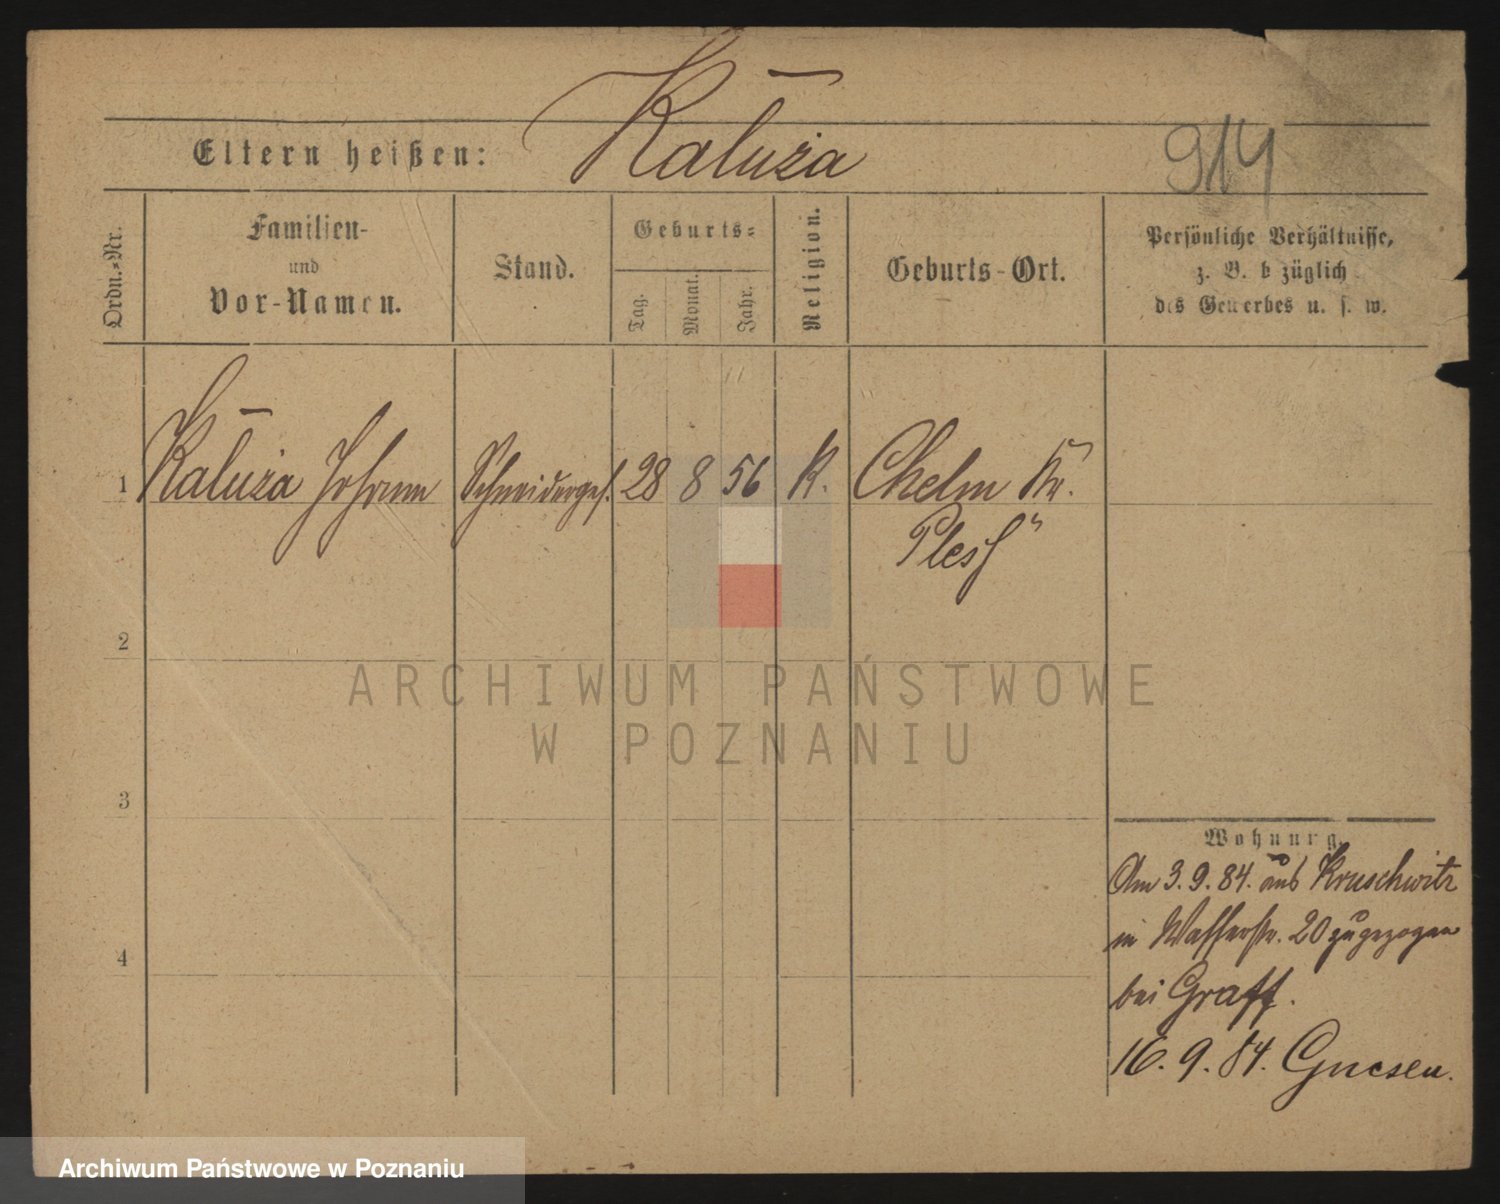 Kałuża
Eltern heißen:
914
Ordn.-Nr.
Familien-
und
Vor-Namen.
Stand.
Geburts-
Tag.
Monat.
Jahr.
Religion.
Geburts-Ort.
Persönliche Verhältnisse,
z. B. bezüglich
des Gewerbes u. s. w.
1 Kałuża Johann Schneiderges. 28 8 56 K. Chelm Kr.
Pless
2
ARCHIWUM PAŃSTWOWE
W POZNANIU
3
Wohnung.
Am 3.9.84. aus Kruschwitz
in Wasserstr. 20 zugezogen
bei Graff.
4
16.9.84. Gnesen.
Archiwum Państwowe w Poznaniu